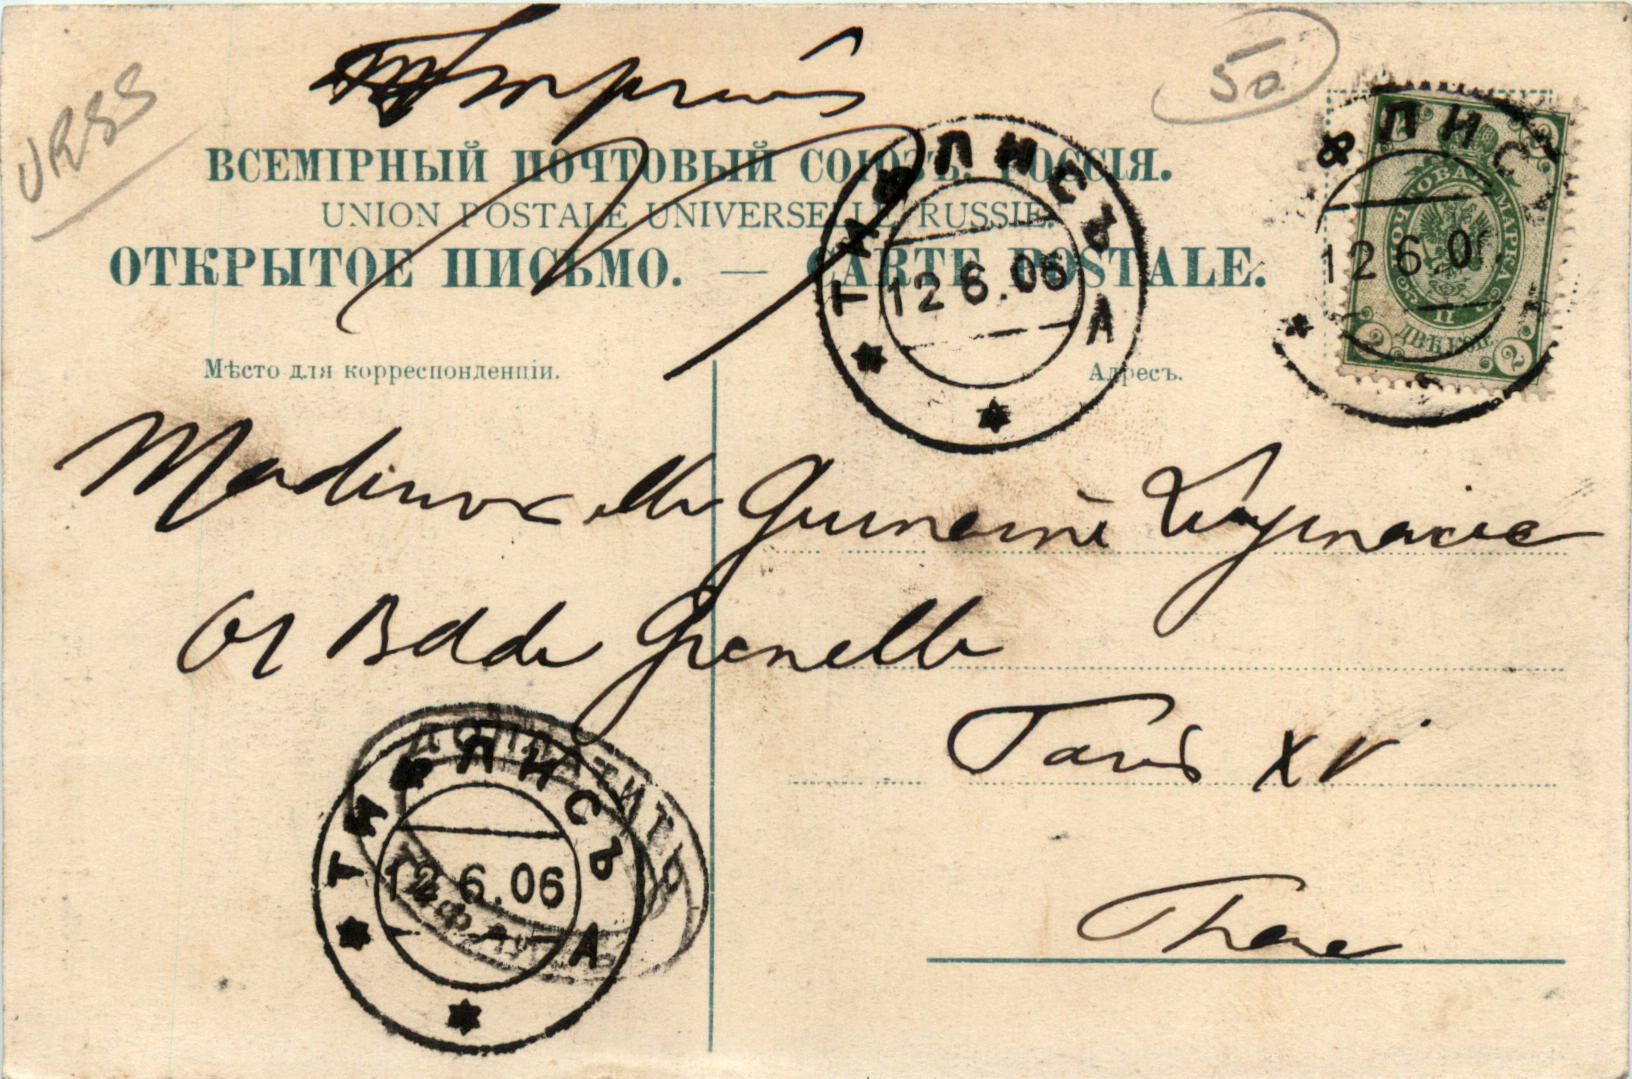 URSS
50
ВСЕМІРНЫЙ ПОЧТОВЫЙ СОЮЗЪ. РОССІЯ.
UNION POSTALE UNIVERSELLE RUSSIE.
ОТКРЫТОЕ ПИСЬМО. — CARTE POSTALE.
ТИФЛИСЪ
12 6.06
А
ФЛИС
12 6.0
ПОЧТОВАЯ МАРКА
ДВѢ КОП.
2 2
Мѣсто для корреспонденціи.
Адресъ.
Mademoiselle Germaine
Bd de Grenelle
Paris XV
ТИФЛИСЪ
12 6.06
А
ДОПЛАТИТЬ
ТИФЛИС